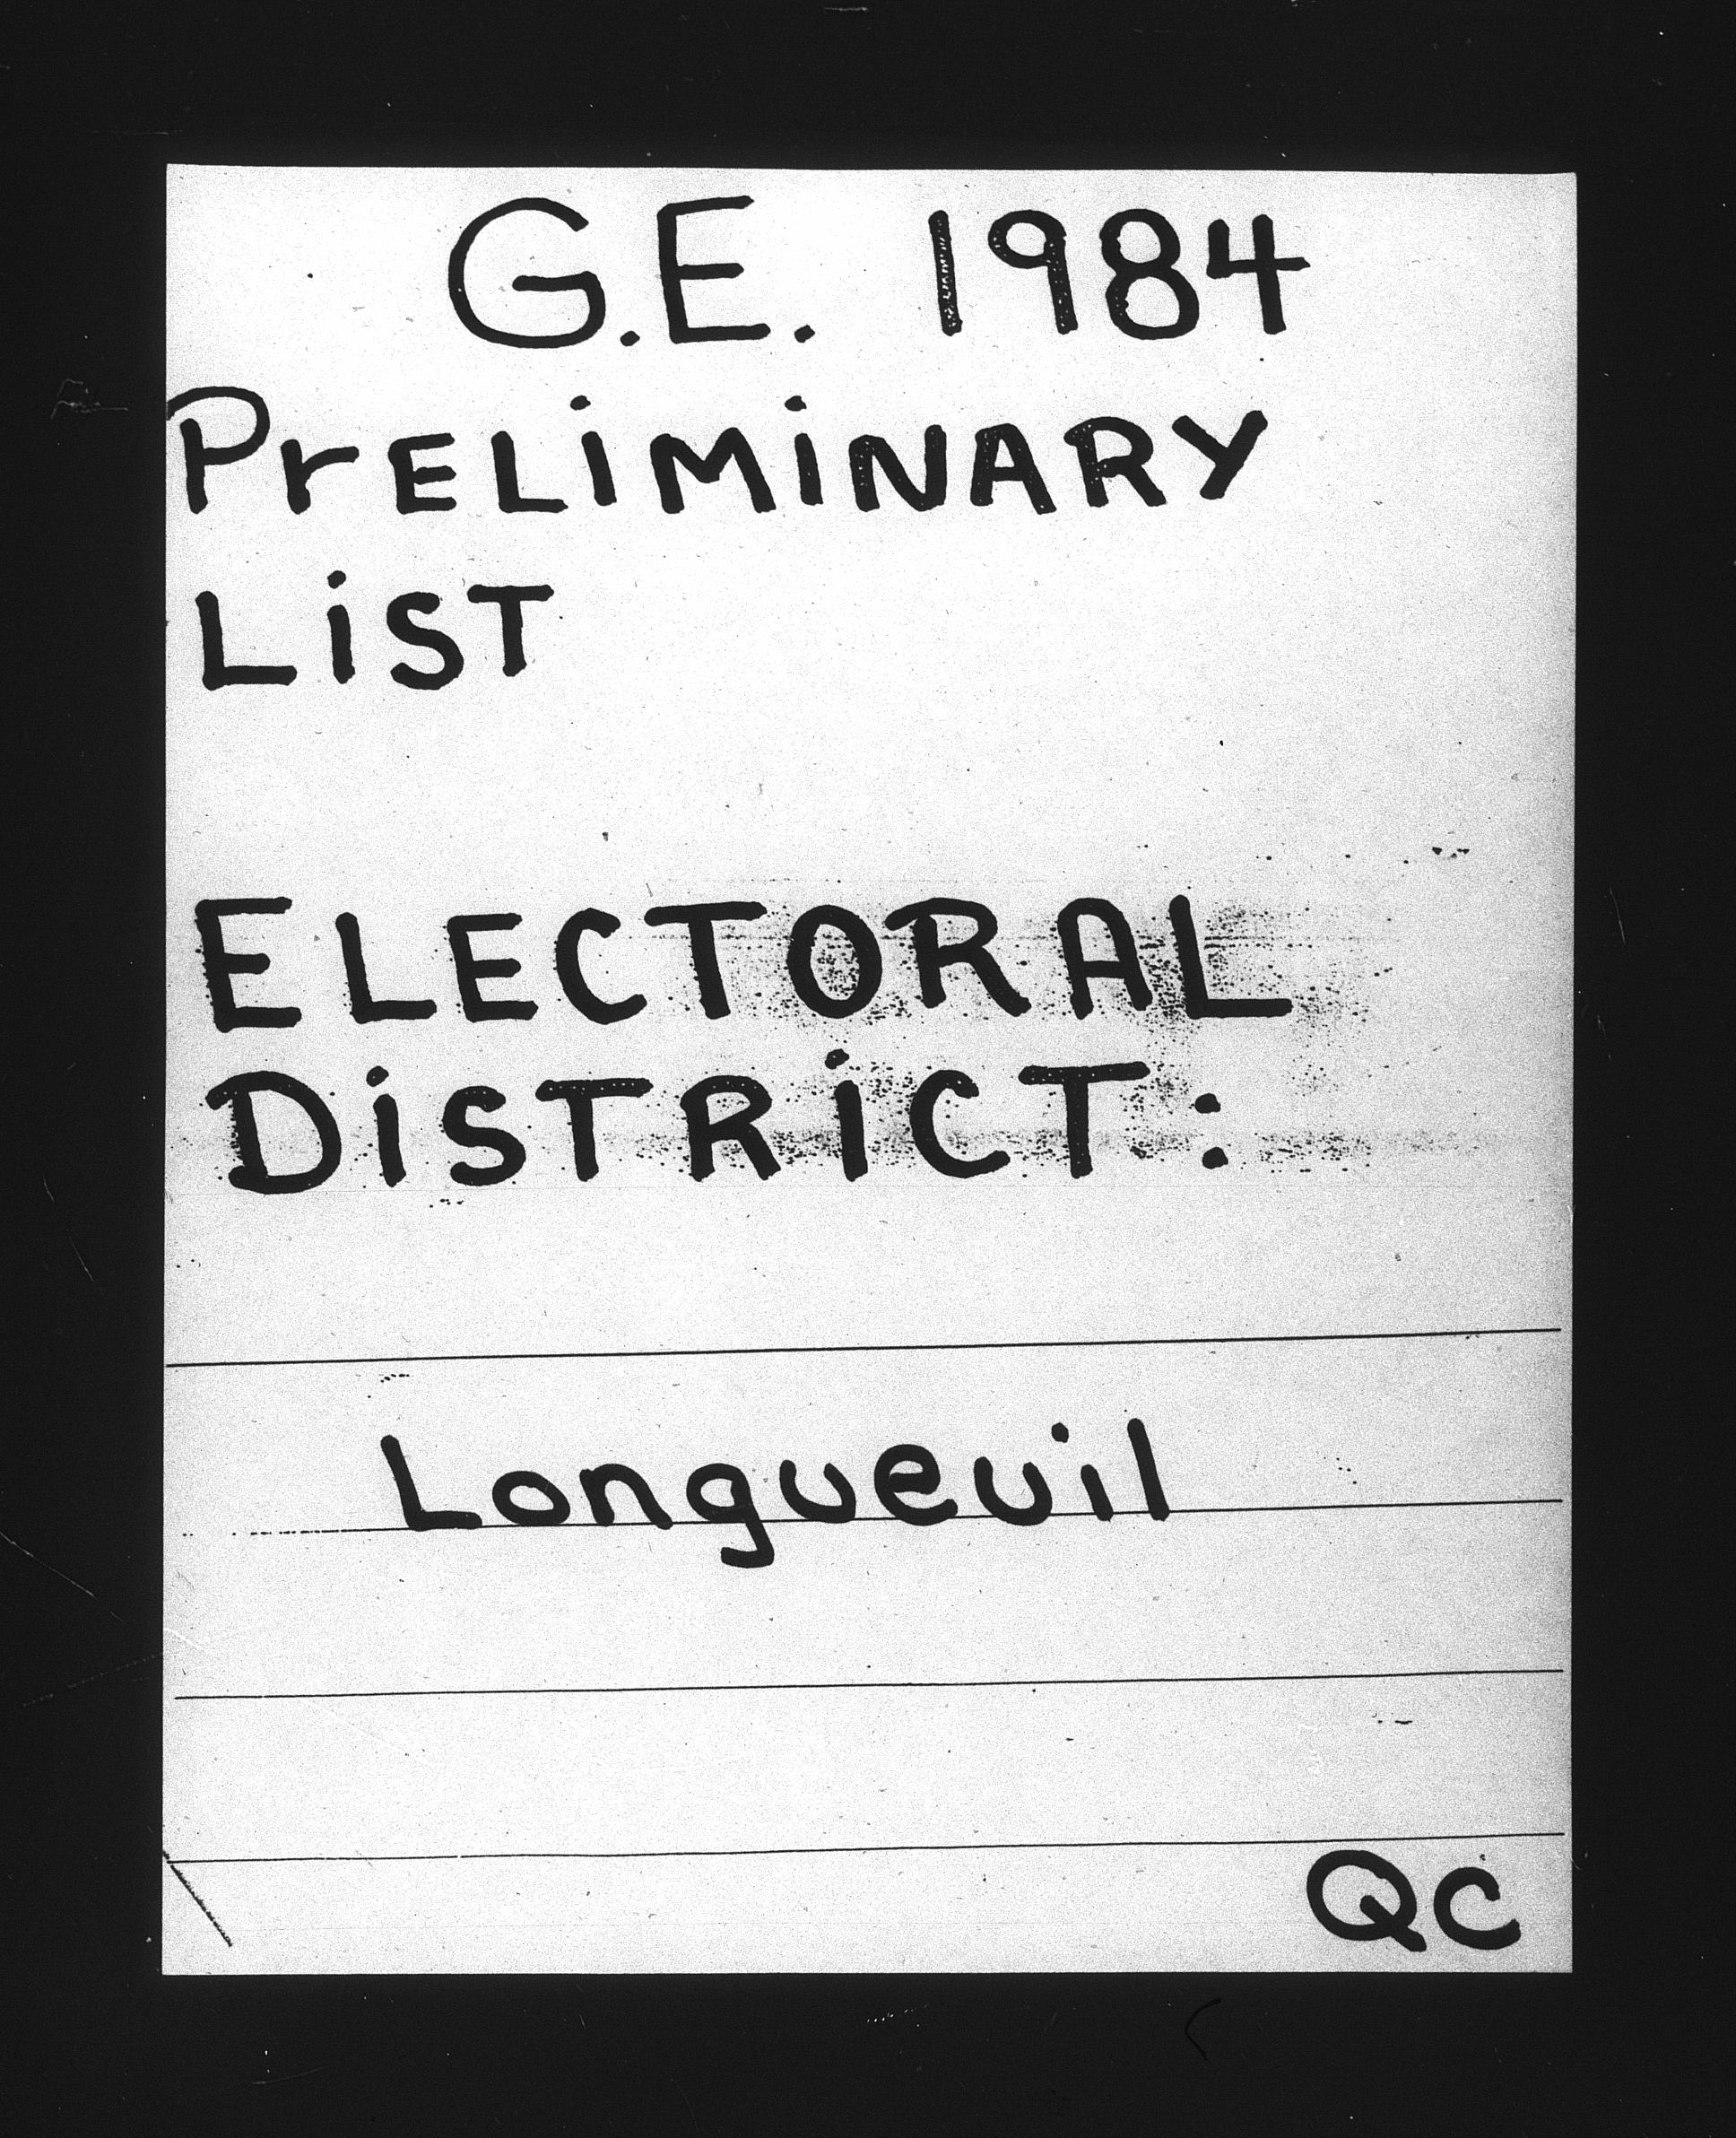 G.E. 1984
PrELiMiNARY
LiST
ELECTORAL
DiSTRiCT:
Longueuil
QC